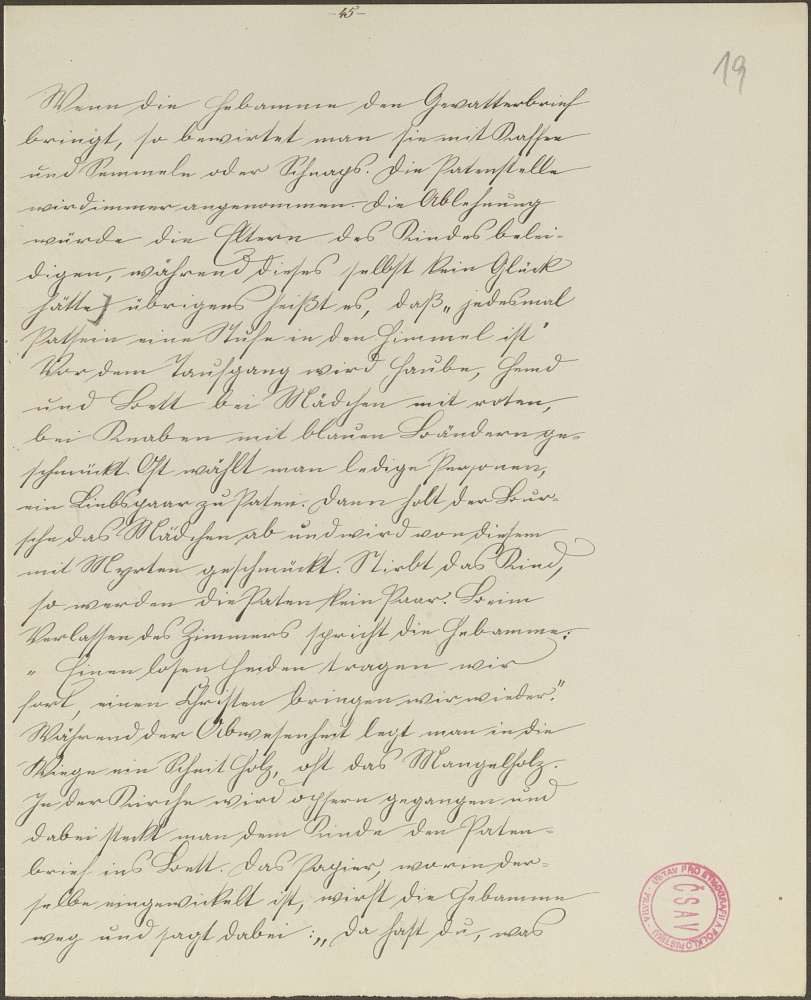 -45-
19
Wenn die Hebamme den Gevatterbrief
bringt, so bewirtet man sie mit Kaffee
und Semmeln oder Schnaps. Die Patenstelle
wird immer angenommen. Die Ablehnung
würde die Eltern des Kindes belei-
digen, während dieses selbst kein Glück
hätte; übrigens heißt es, daß „jedesmal
Patsein eine Stufe in den Himmel ist"
Vor dem Taufgang wird Haube, Hemd
und Bett bei Mädchen mit roten,
bei Knaben mit blauen Bändern ge-
schmückt. Oft wählt man ledige Personen,
ein Liebspaar zu Paten. Dann holt der Bur-
sche das Mädchen ab und wird von diesem
mit Myrten geschmückt. Stirbt das Kind,
so werden die Paten kein Paar. Beim
Verlassen des Zimmers spricht die Hebamme:
„Einen losen Heiden tragen wir
fort, einen Christen bringen wir wieder."
Während der Abwesenheit legt man in die
Wiege ein Scheit Holz, oft das Mangelholz.
In der Kirche wird opfern gegangen und
dabei steckt man dem Kinde den Paten-
brief ins Bett. Das Papier, worin der-
selbe eingewickelt ist, wirft die Hebamme
weg und sagt dabei: „Da hast du, was
ÚSTAV PRO ETNOGRAFII A FOLKLORISTIKU - PRAHA -
ČSAV